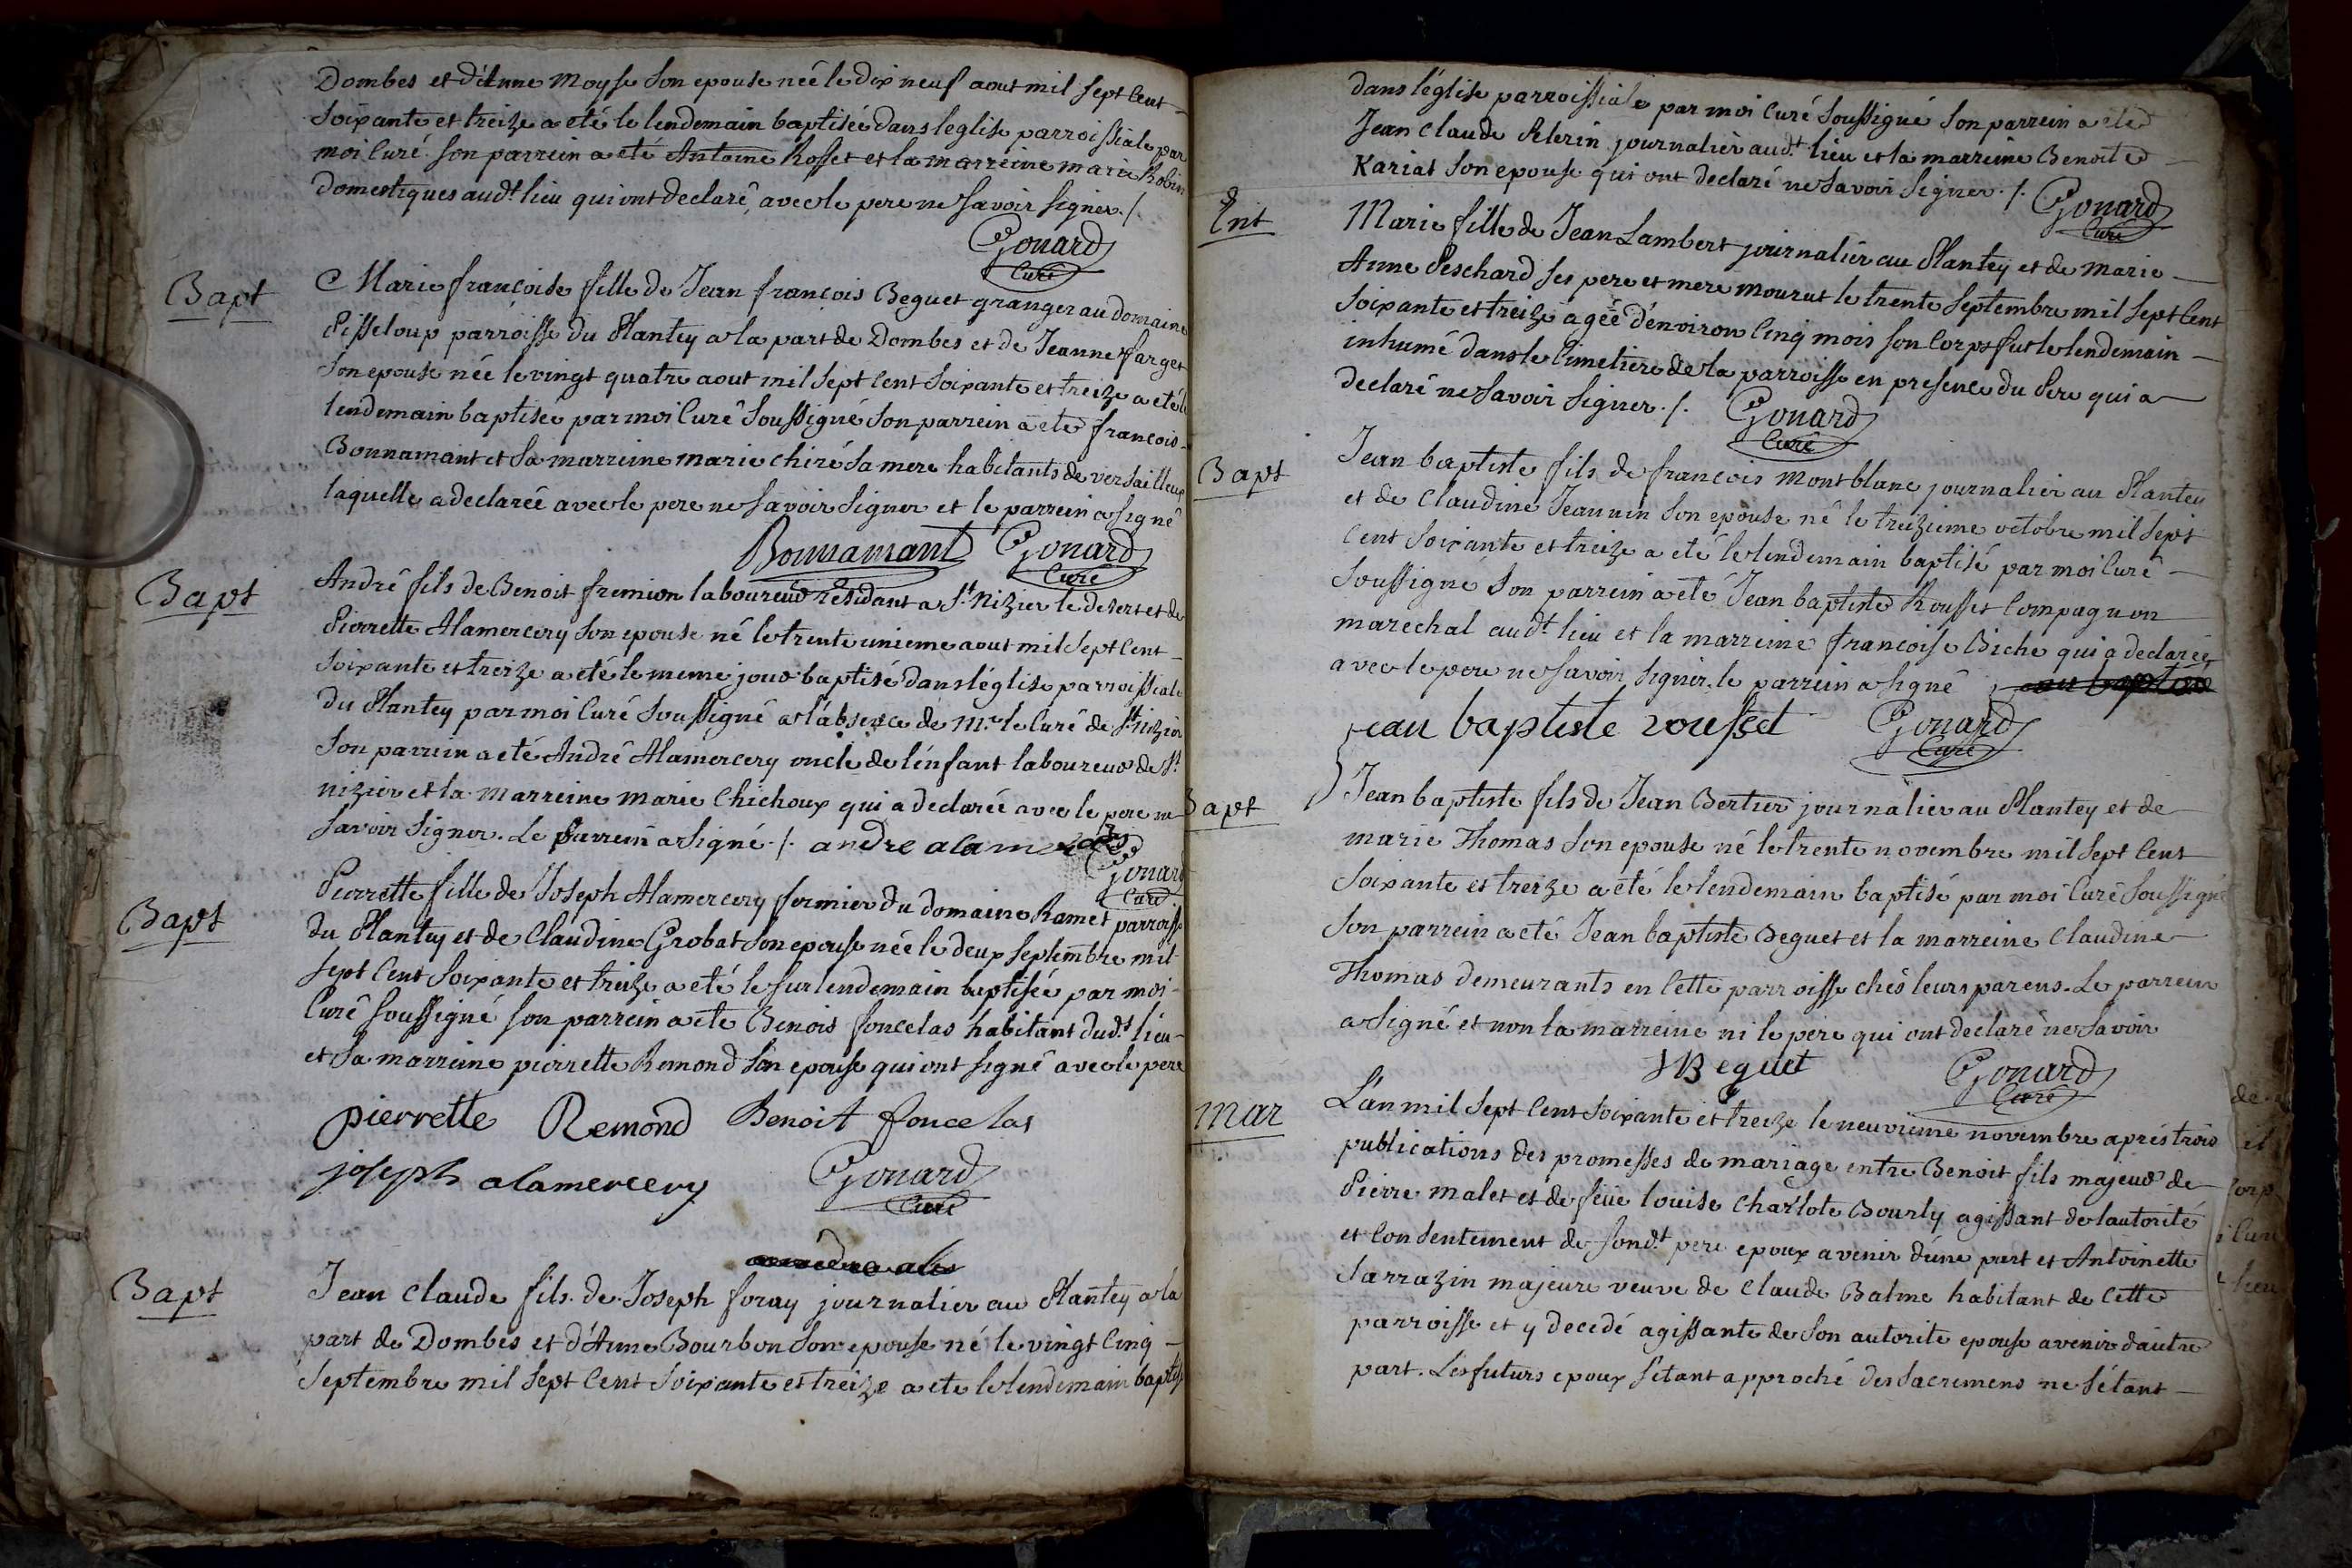 Dombes et d'Anne Moyse Son epouse née le dix neuf aout mil sept cent
soixante et treize a eté le lendemain baptisée dans leglise parroissiale par
moi Curé. son parrein a eté Antoine Rosset et la marreine marie Robin
domestiques audt. lieu qui ont declaré, avec le pere ne savoir signer ./.
Gonard
Curé
Bapt
Marie françoise fille de Jean françois Beguet granger au domaine
Pisseloup parroisse du Plantey a la part de Dombes et de Jeanne farget
son epouse née le vingt quatre aout mil sept cent soixante et treize a eté le
lendemain baptisée par moi Curé soussigné son parrein a eté françois
Bonnamant et sa marreine marie chiré sa mere habitants de versailleux
laquelle a declarée avec le pere ne savoir signer et le parrein a signé
Bonnamant Gonard
Curé
Bapt
André fils de Benoit fremion laboureur residant a St. Nizier le desert et de
Pierrette Alamercery son epouse né le trente unieme aout mil sept cent
soixante et treize a eté le meme jour baptisé dans l'église parroissiale
du Plantey par moi Curé soussigné a l'absence de Mr. le Curé de St. nizier
son parrein a eté André Alamercery oncle de l'enfant laboureur de St.
nizier et la marreine marie Chichoux qui a declarée avec le pere ne
savoir signer. Le parrein a signé ./. andre alamercery
Gonard
Curé
Bapt
Pierrette fille de Joseph Alamercery fermier du domaine Ramet parroisse
du Plantey et de Claudine Grobat son epouse née le deux septembre mil
sept cent soixante et treize a eté le surlendemain baptisée par moi
Curé soussigné son parrein a eté Benois foncelas habitant dudt. lieu
et sa marreine pierrette Remond son epouse qui ont signé avec le pere
pierrette Remond Benoit foncelas
joseph alamercery Gonard
Curé
Bapt
Jean Claude fils de Joseph foray journalier au Plantey a la
part de Dombes et d'Anne Bourbon son epouse né le vingt cinq
septembre mil sept cent soixante et treize a eté le lendemain baptisé
dans l'église parroissiale par moi Curé soussigné son parrein a eté
Jean Claude Pelerin journalier audt. lieu et la marreine Benoite
Kariat son epouse qui ont declaré ne savoir signer ./. Gonard
Curé
Ent
Marie fille de Jean Lambert journalier au Plantey et de marie
Anne Peschard ses pere et mere mourut le trente septembre mil sept cent
soixante et treize agée d'environ cinq mois son corps fut le lendemain
inhumé dans le Cimetiere de la parroisse en presence du Pere qui a
declaré ne savoir signer ./. Gonard
Curé
Bapt
Jean baptiste fils de francois Montblanc journalier au Plantey
et de Claudine Jeannin son epouse né le treizieme octobre mil sept
cent soixante et treize a eté le lendemain baptisé par moi Curé
soussigné son parrein a eté Jean baptiste Rousset compagnon
marechal audt. lieu et la marreine francoise Biche qui a declarée
avec le pere ne savoir signer, le parrein a signé
jean baptiste rousset Gonard
Curé
Bapt
Jean baptiste fils de Jean Bertier journalier au Plantey et de
marie Thomas son epouse né le trente novembre mil sept cent
soixante et treize a eté le lendemain baptisé par moi Curé soussigné
son parrein a eté Jean baptiste Beguet et la marreine Claudine
Thomas demeurants en cette parroisse chés leurs parens. Le parrein
a signé et non la marreine ni le pere qui ont declaré ne savoir
JB eguet Gonard
Curé
Mar
L'an mil sept cent soixante et treize le neuvieme novembre après trois
publications des promesses de mariage entre Benoit fils majeur de
Pierre malet et de feüe louise Charlote Bourly agissant de lautorité
et consentement de sondt. pere epoux avenir d'une part et Antoinette
Sarrazin majeure veuve de Claude Balme habitant de cette
parroisse et y decedé agissante de son autorite epouse avenir d'autre
part. Les futurs epoux s'étant approché des sacremens ne s'étant